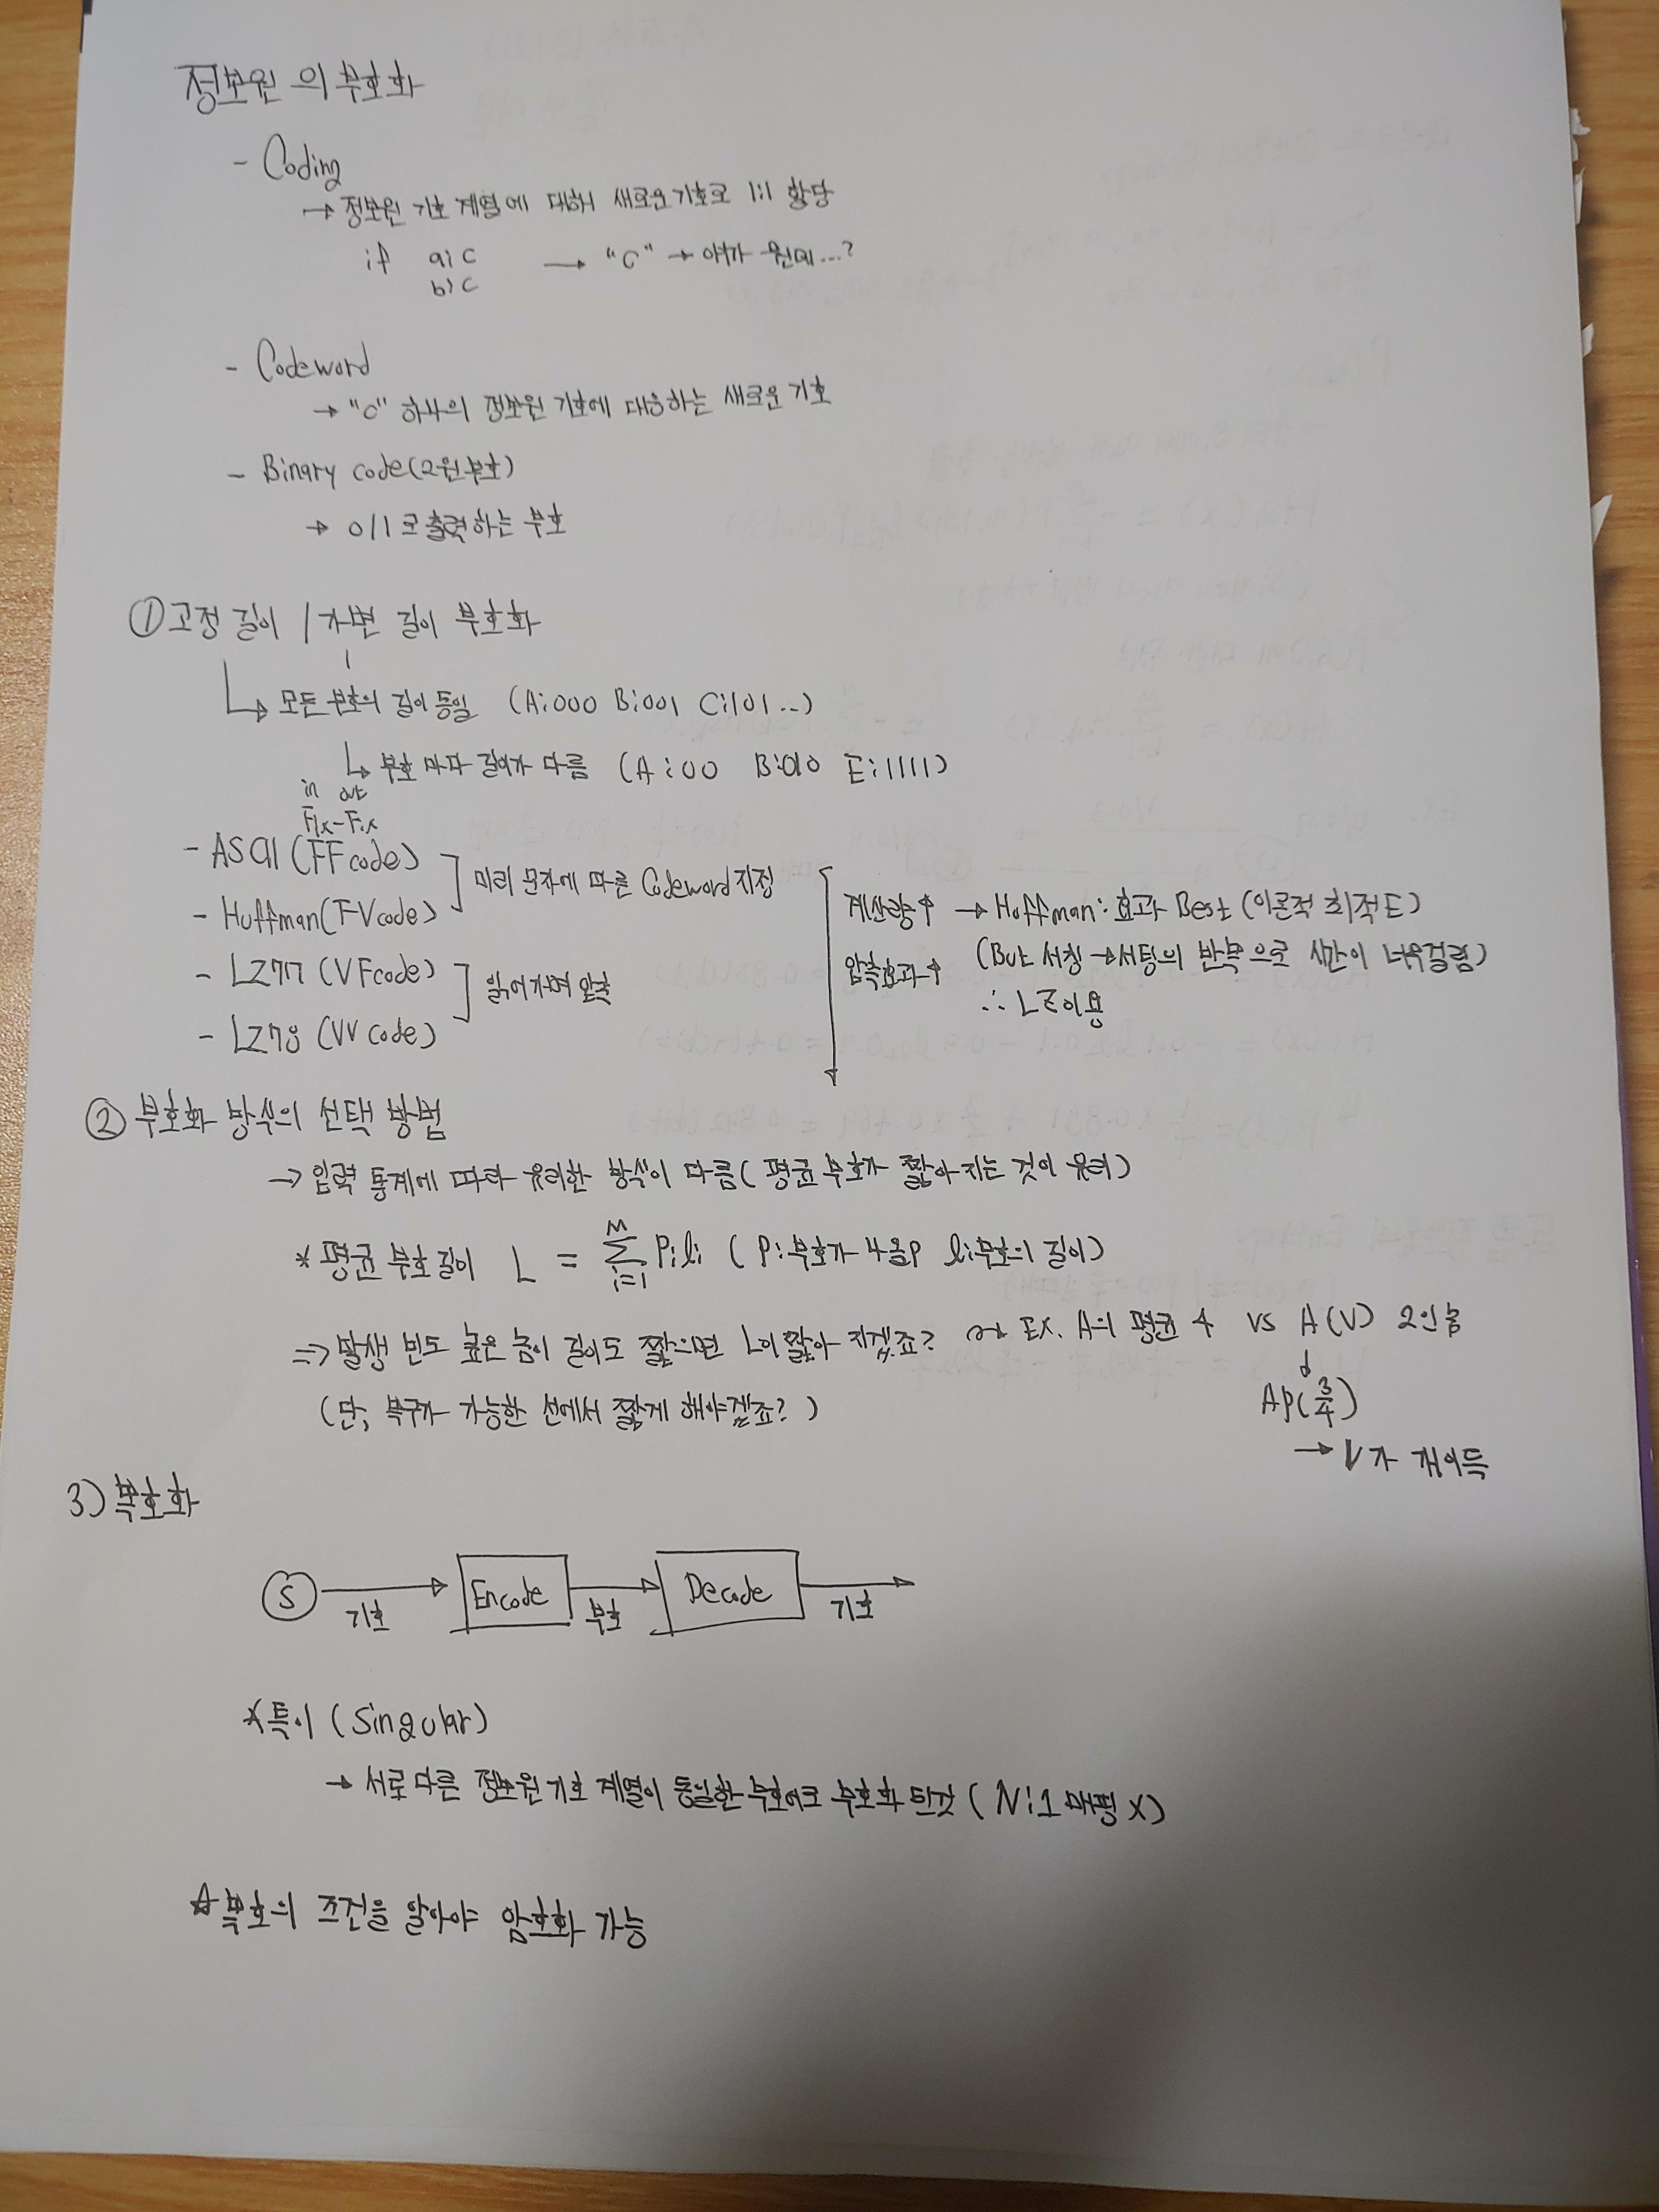 정보원의 부호화
- Coding
→ 정보원 기호 계열에 대해 새로운 기호로 1:1 할당
if a: c → "c" → 얘가 뭔데...?
b: c
- Codeword
→ "c" 하나의 정보원 기호에 대응하는 새로운 기호
- Binary code(2원 부호)
→ 0/1로 출력하는 부호
① 고정 길이 / 가변 길이 부호화
모든 부호의 길이 동일 (A:000 B:001 C:101..)
부호마다 길이가 다름 (A:00 B:010 E:1111)
in out
Fix-Fix
- ASCII (FF code)
- Huffman(FV code)
미리 문자에 따른 Codeword 지정
- LZ77 (VF code)
- LZ78 (VV code)
읽어가며 압축
계산량↑ → Huffman: 효과 Best (이론적 최적 E)
압축효과↑ (But 서칭→서팅의 반복으로 시간이 너무걸림)
∴ LZ이용
② 부호화 방식의 선택 방법
→ 입력 통계에 따라 유리한 방식이 다름 (평균 부호가 짧아지는 것이 유리)
* 평균 부호 길이 L = Σ_{i=1}^{M} Pili (P:부호가 나올P li:부호의 길이)
⇒ 발생 빈도 높은 놈이 길이도 짧으면 L이 짧아 지겠죠? → EX. A의 평균 4 vs A(V) 2인 놈
AP(3/4)
→ V가 개이득
(단, 복구가 가능한 선에서 짧게 해야겠죠?)
3) 복호화
S → 기호 → Encode → 부호 → Decode → 기호
*특이 (Singular)
→ 서로 다른 정보원 기호 계열이 동일한 부호어로 부호화 된것 (N:1 매핑 X)
☆복호의 조건을 알아야 암호화 가능